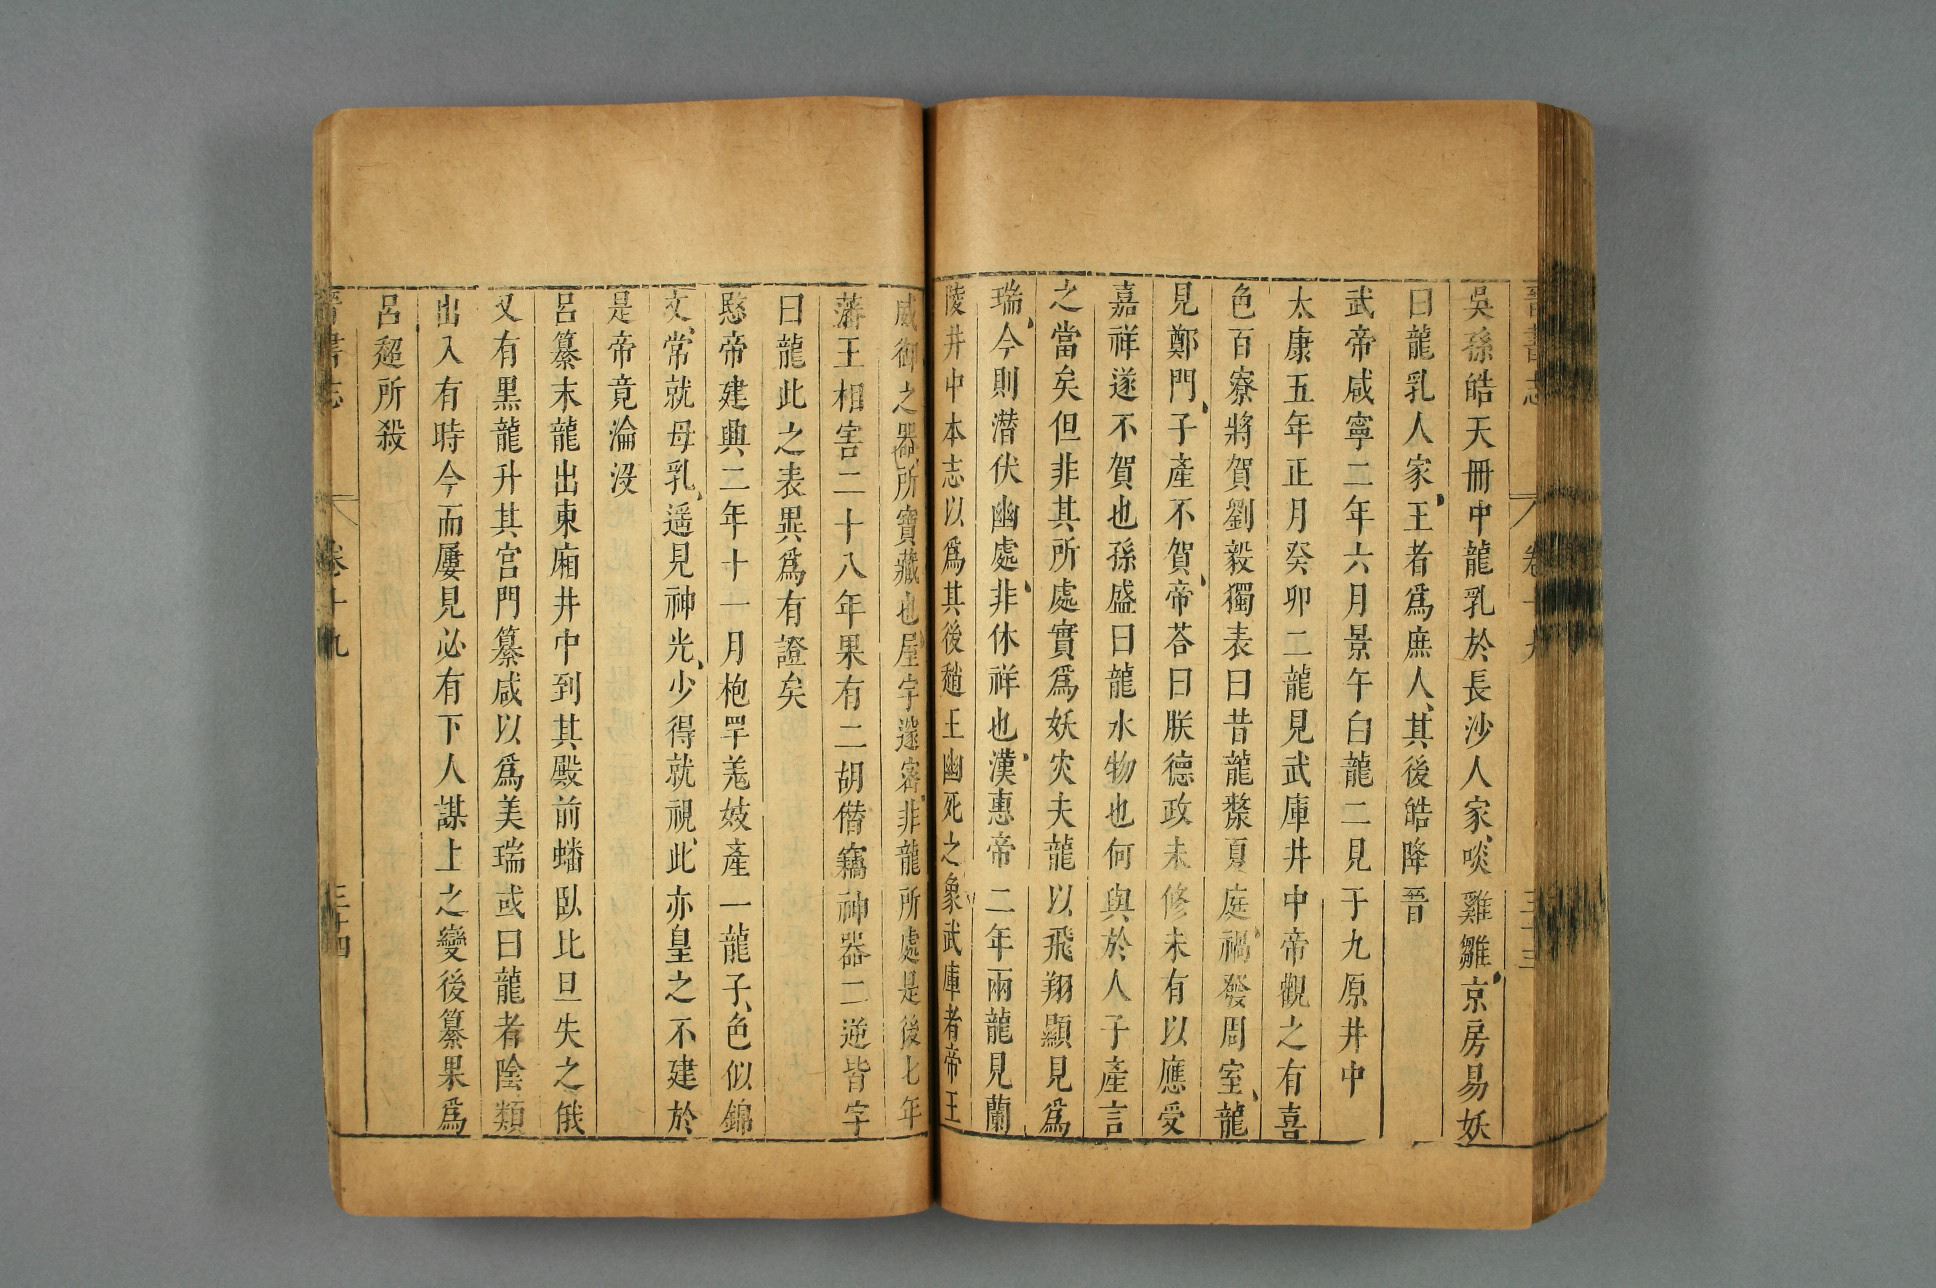 晉書志 卷十九 三十三
吳孫皓天冊中龍乳於長沙人家啖雞雛京房易妖
曰龍乳人家王者爲庶人其後皓降晉
武帝咸寧二年六月景午白龍二見于九原井中
太康五年正月癸卯二龍見武庫井中帝觀之有喜
色百寮將賀劉毅獨表曰昔龍漦夏庭禍發周室龍
見鄭門子產不賀帝荅曰朕德政未修未有以應受
嘉祥遂不賀也孫盛曰龍水物也何與於人子產言
之當矣但非其所處實爲妖灾夫龍以飛翔顯見爲
瑞今則潛伏幽處非休祥也漢惠帝二年兩龍見蘭
陵井中本志以爲其後趙王幽死之象武庫者帝王
威御之器所寶藏也屋宇邃密非龍所處是後七年
藩王相害二十八年果有二胡僭竊神器二逆皆字
曰龍此之表異爲有證矣
愍帝建興二年十一月枹罕羗妓產一龍子色似錦
文常就母乳遥見神光少得就視此亦皇之不建於
是帝竟淪沒
呂纂末龍出東廂井中到其殿前蟠臥比旦失之俄
又有黑龍升其宮門纂咸以爲美瑞或曰龍者陰類
出入有時今而屢見必有下人謀上之變後纂果爲
呂超所殺
晉書志 卷十九 三十四